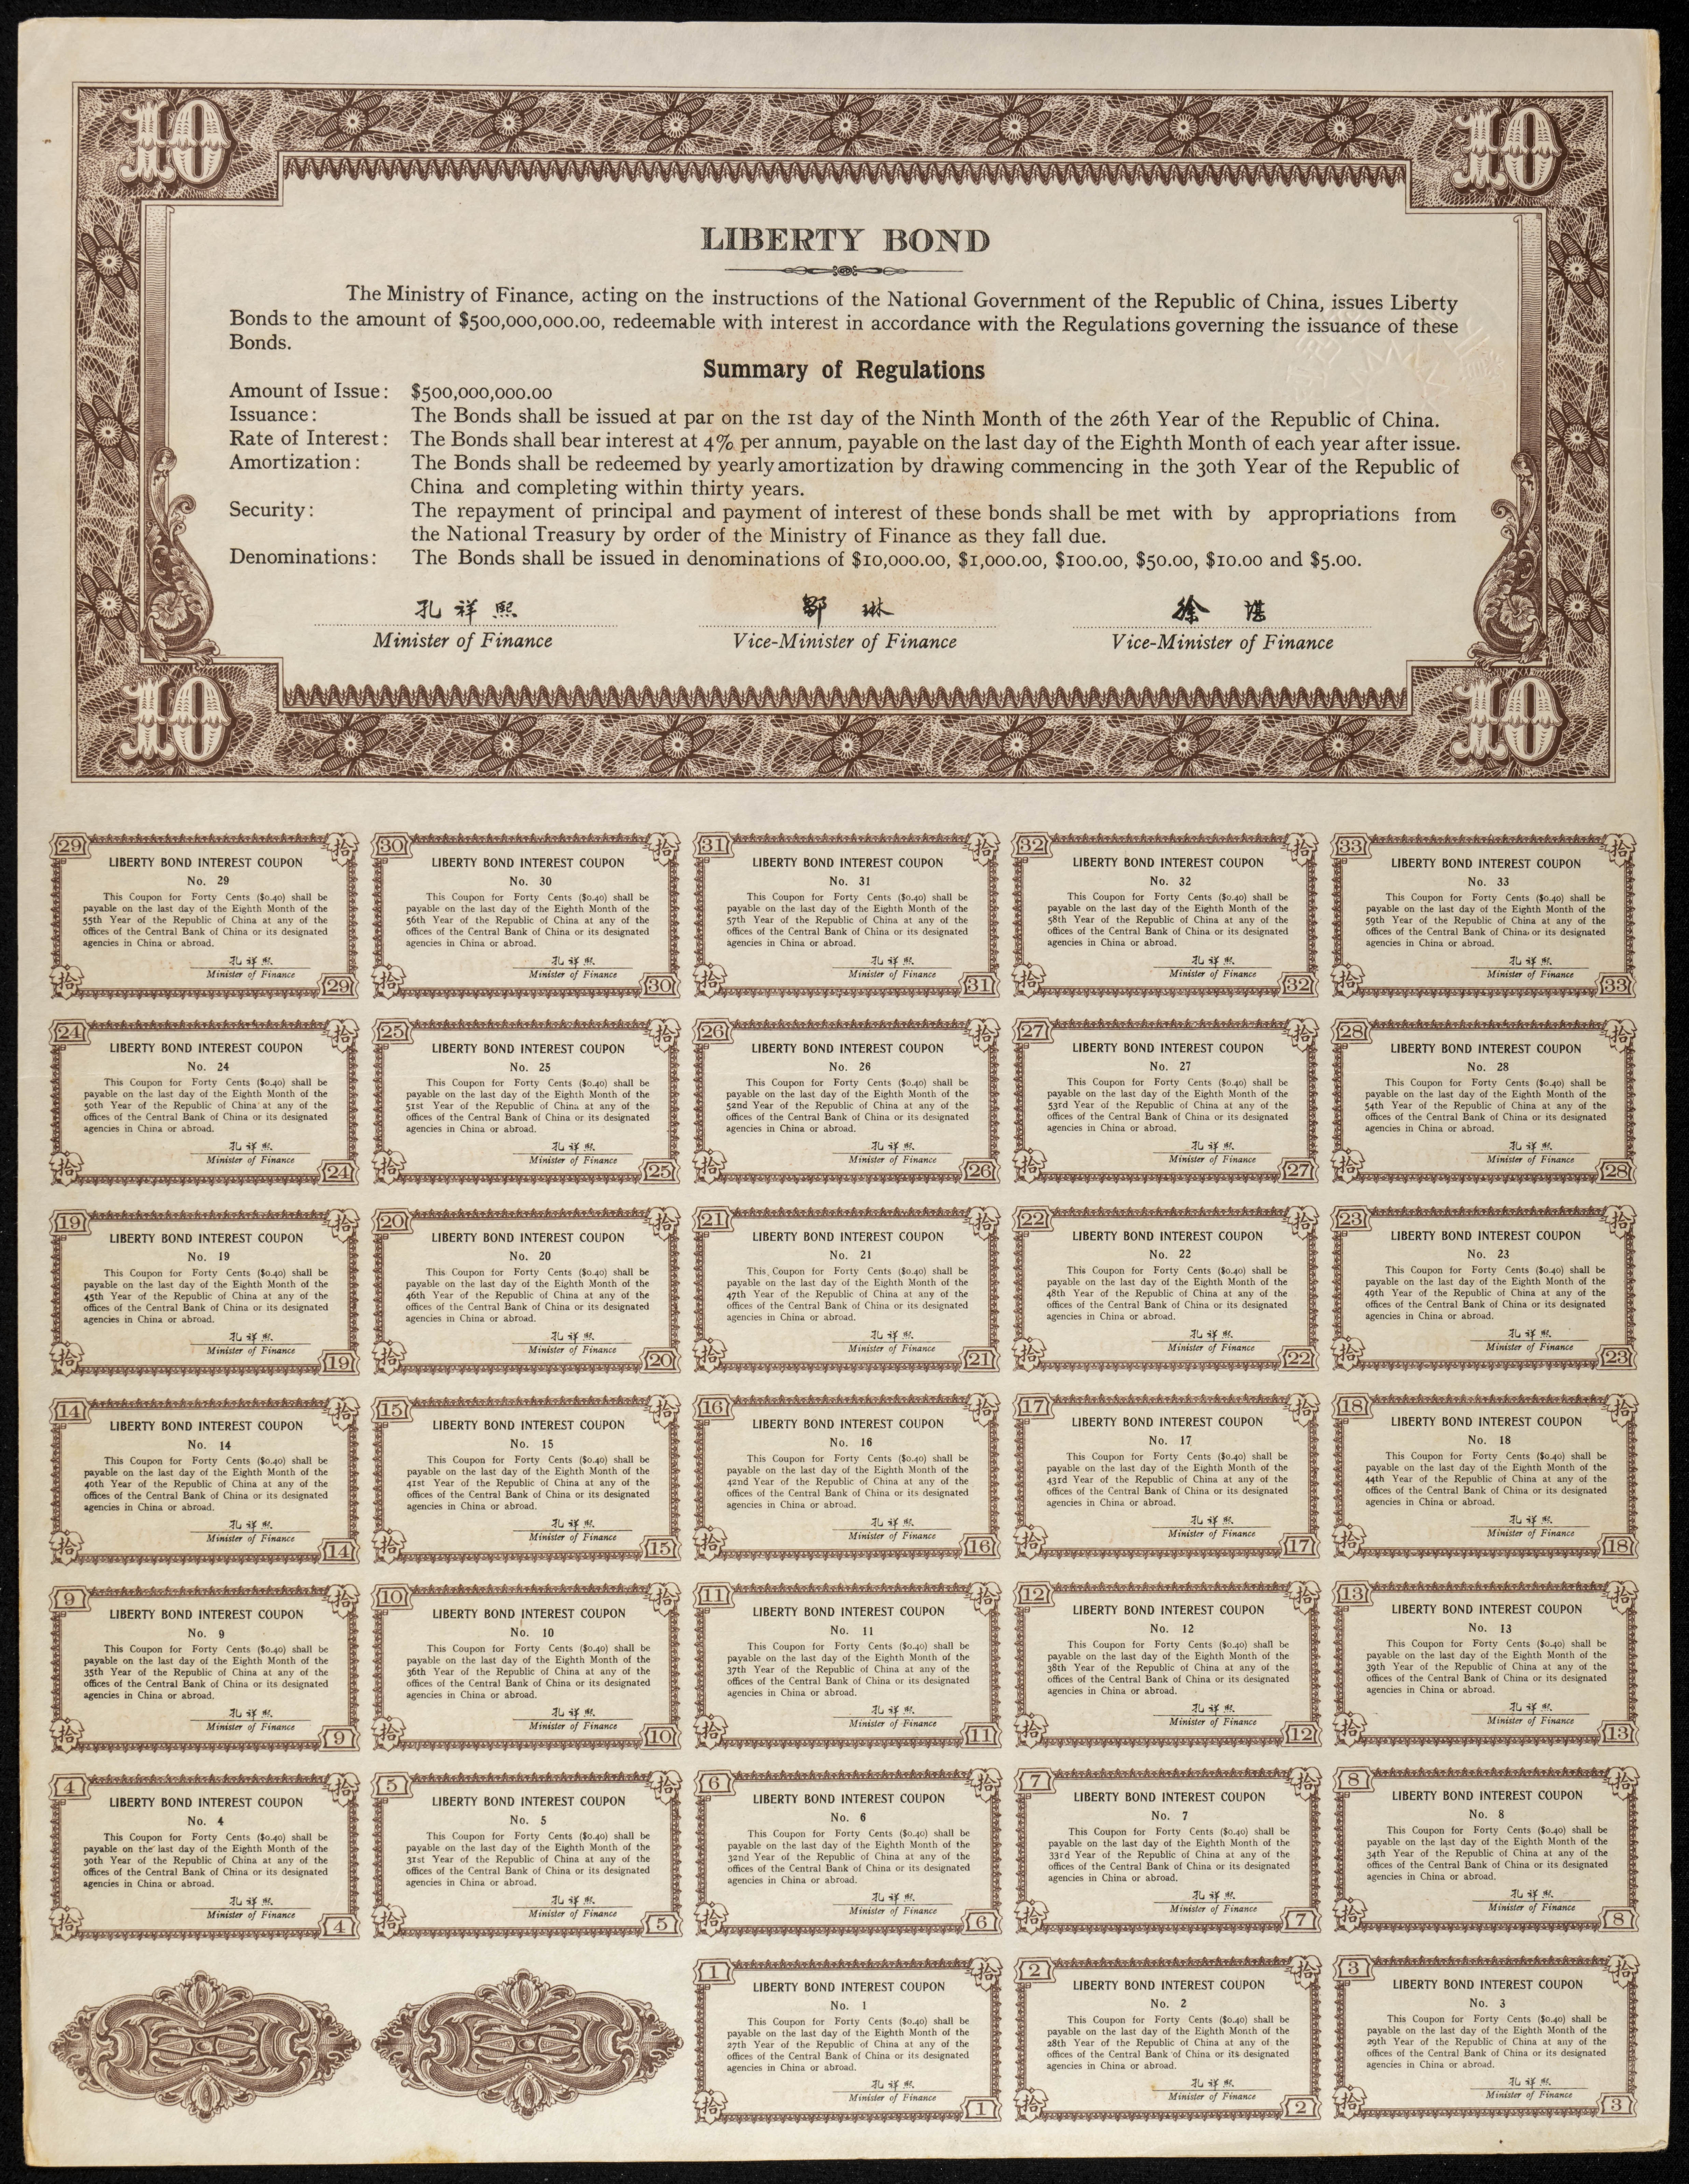 10 10
LIBERTY BOND
The Ministry of Finance, acting on the instructions of the National Government of the Republic of China, issues Liberty
Bonds to the amount of $500,000,000.00, redeemable with interest in accordance with the Regulations governing the issuance of these
Bonds.
Summary of Regulations
Amount of Issue: $500,000,000.00
Issuance: The Bonds shall be issued at par on the 1st day of the Ninth Month of the 26th Year of the Republic of China.
Rate of Interest: The Bonds shall bear interest at 4% per annum, payable on the last day of the Eighth Month of each year after issue.
Amortization: The Bonds shall be redeemed by yearly amortization by drawing commencing in the 30th Year of the Republic of
China and completing within thirty years.
Security: The repayment of principal and payment of interest of these bonds shall be met with by appropriations from
the National Treasury by order of the Ministry of Finance as they fall due.
Denominations: The Bonds shall be issued in denominations of $10,000.00, $1,000.00, $100.00, $50.00, $10.00 and $5.00.
孔祥熙 鄒琳 徐堪
Minister of Finance Vice-Minister of Finance Vice-Minister of Finance
10 10
29 拾
LIBERTY BOND INTEREST COUPON
No. 29
This Coupon for Forty Cents ($0.40) shall be
payable on the last day of the Eighth Month of the
55th Year of the Republic of China at any of the
offices of the Central Bank of China or its designated
agencies in China or abroad.
孔祥熙
Minister of Finance
拾 29
30 拾
LIBERTY BOND INTEREST COUPON
No. 30
This Coupon for Forty Cents ($0.40) shall be
payable on the last day of the Eighth Month of the
56th Year of the Republic of China at any of the
offices of the Central Bank of China or its designated
agencies in China or abroad.
孔祥熙
Minister of Finance
拾 30
31 拾
LIBERTY BOND INTEREST COUPON
No. 31
This Coupon for Forty Cents ($0.40) shall be
payable on the last day of the Eighth Month of the
57th Year of the Republic of China at any of the
offices of the Central Bank of China or its designated
agencies in China or abroad.
孔祥熙
Minister of Finance
拾 31
32 拾
LIBERTY BOND INTEREST COUPON
No. 32
This Coupon for Forty Cents ($0.40) shall be
payable on the last day of the Eighth Month of the
58th Year of the Republic of China at any of the
offices of the Central Bank of China or its designated
agencies in China or abroad.
孔祥熙
Minister of Finance
拾 32
33 拾
LIBERTY BOND INTEREST COUPON
No. 33
This Coupon for Forty Cents ($0.40) shall be
payable on the last day of the Eighth Month of the
59th Year of the Republic of China at any of the
offices of the Central Bank of China or its designated
agencies in China or abroad.
孔祥熙
Minister of Finance
拾 33
24 拾
LIBERTY BOND INTEREST COUPON
No. 24
This Coupon for Forty Cents ($0.40) shall be
payable on the last day of the Eighth Month of the
50th Year of the Republic of China at any of the
offices of the Central Bank of China or its designated
agencies in China or abroad.
孔祥熙
Minister of Finance
拾 24
25 拾
LIBERTY BOND INTEREST COUPON
No. 25
This Coupon for Forty Cents ($0.40) shall be
payable on the last day of the Eighth Month of the
51st Year of the Republic of China at any of the
offices of the Central Bank of China or its designated
agencies in China or abroad.
孔祥熙
Minister of Finance
拾 25
26 拾
LIBERTY BOND INTEREST COUPON
No. 26
This Coupon for Forty Cents ($0.40) shall be
payable on the last day of the Eighth Month of the
52nd Year of the Republic of China at any of the
offices of the Central Bank of China or its designated
agencies in China or abroad.
孔祥熙
Minister of Finance
拾 26
27 拾
LIBERTY BOND INTEREST COUPON
No. 27
This Coupon for Forty Cents ($0.40) shall be
payable on the last day of the Eighth Month of the
53rd Year of the Republic of China at any of the
offices of the Central Bank of China or its designated
agencies in China or abroad.
孔祥熙
Minister of Finance
拾 27
28 拾
LIBERTY BOND INTEREST COUPON
No. 28
This Coupon for Forty Cents ($0.40) shall be
payable on the last day of the Eighth Month of the
54th Year of the Republic of China at any of the
offices of the Central Bank of China or its designated
agencies in China or abroad.
孔祥熙
Minister of Finance
拾 28
19 拾
LIBERTY BOND INTEREST COUPON
No. 19
This Coupon for Forty Cents ($0.40) shall be
payable on the last day of the Eighth Month of the
45th Year of the Republic of China at any of the
offices of the Central Bank of China or its designated
agencies in China or abroad.
孔祥熙
Minister of Finance
拾 19
20 拾
LIBERTY BOND INTEREST COUPON
No. 20
This Coupon for Forty Cents ($0.40) shall be
payable on the last day of the Eighth Month of the
46th Year of the Republic of China at any of the
offices of the Central Bank of China or its designated
agencies in China or abroad.
孔祥熙
Minister of Finance
拾 20
21 拾
LIBERTY BOND INTEREST COUPON
No. 21
This Coupon for Forty Cents ($0.40) shall be
payable on the last day of the Eighth Month of the
47th Year of the Republic of China at any of the
offices of the Central Bank of China or its designated
agencies in China or abroad.
孔祥熙
Minister of Finance
拾 21
22 拾
LIBERTY BOND INTEREST COUPON
No. 22
This Coupon for Forty Cents ($0.40) shall be
payable on the last day of the Eighth Month of the
48th Year of the Republic of China at any of the
offices of the Central Bank of China or its designated
agencies in China or abroad.
孔祥熙
Minister of Finance
拾 22
23 拾
LIBERTY BOND INTEREST COUPON
No. 23
This Coupon for Forty Cents ($0.40) shall be
payable on the last day of the Eighth Month of the
49th Year of the Republic of China at any of the
offices of the Central Bank of China or its designated
agencies in China or abroad.
孔祥熙
Minister of Finance
拾 23
14 拾
LIBERTY BOND INTEREST COUPON
No. 14
This Coupon for Forty Cents ($0.40) shall be
payable on the last day of the Eighth Month of the
40th Year of the Republic of China at any of the
offices of the Central Bank of China or its designated
agencies in China or abroad.
孔祥熙
Minister of Finance
拾 14
15 拾
LIBERTY BOND INTEREST COUPON
No. 15
This Coupon for Forty Cents ($0.40) shall be
payable on the last day of the Eighth Month of the
41st Year of the Republic of China at any of the
offices of the Central Bank of China or its designated
agencies in China or abroad.
孔祥熙
Minister of Finance
拾 15
16 拾
LIBERTY BOND INTEREST COUPON
No. 16
This Coupon for Forty Cents ($0.40) shall be
payable on the last day of the Eighth Month of the
42nd Year of the Republic of China at any of the
offices of the Central Bank of China or its designated
agencies in China or abroad.
孔祥熙
Minister of Finance
拾 16
17 拾
LIBERTY BOND INTEREST COUPON
No. 17
This Coupon for Forty Cents ($0.40) shall be
payable on the last day of the Eighth Month of the
43rd Year of the Republic of China at any of the
offices of the Central Bank of China or its designated
agencies in China or abroad.
孔祥熙
Minister of Finance
拾 17
18 拾
LIBERTY BOND INTEREST COUPON
No. 18
This Coupon for Forty Cents ($0.40) shall be
payable on the last day of the Eighth Month of the
44th Year of the Republic of China at any of the
offices of the Central Bank of China or its designated
agencies in China or abroad.
孔祥熙
Minister of Finance
拾 18
9 拾
LIBERTY BOND INTEREST COUPON
No. 9
This Coupon for Forty Cents ($0.40) shall be
payable on the last day of the Eighth Month of the
35th Year of the Republic of China at any of the
offices of the Central Bank of China or its designated
agencies in China or abroad.
孔祥熙
Minister of Finance
拾 9
10 拾
LIBERTY BOND INTEREST COUPON
No. 10
This Coupon for Forty Cents ($0.40) shall be
payable on the last day of the Eighth Month of the
36th Year of the Republic of China at any of the
offices of the Central Bank of China or its designated
agencies in China or abroad.
孔祥熙
Minister of Finance
拾 10
11 拾
LIBERTY BOND INTEREST COUPON
No. 11
This Coupon for Forty Cents ($0.40) shall be
payable on the last day of the Eighth Month of the
37th Year of the Republic of China at any of the
offices of the Central Bank of China or its designated
agencies in China or abroad.
孔祥熙
Minister of Finance
拾 11
12 拾
LIBERTY BOND INTEREST COUPON
No. 12
This Coupon for Forty Cents ($0.40) shall be
payable on the last day of the Eighth Month of the
38th Year of the Republic of China at any of the
offices of the Central Bank of China or its designated
agencies in China or abroad.
孔祥熙
Minister of Finance
拾 12
13 拾
LIBERTY BOND INTEREST COUPON
No. 13
This Coupon for Forty Cents ($0.40) shall be
payable on the last day of the Eighth Month of the
39th Year of the Republic of China at any of the
offices of the Central Bank of China or its designated
agencies in China or abroad.
孔祥熙
Minister of Finance
拾 13
4 拾
LIBERTY BOND INTEREST COUPON
No. 4
This Coupon for Forty Cents ($0.40) shall be
payable on the last day of the Eighth Month of the
30th Year of the Republic of China at any of the
offices of the Central Bank of China or its designated
agencies in China or abroad.
孔祥熙
Minister of Finance
拾 4
5 拾
LIBERTY BOND INTEREST COUPON
No. 5
This Coupon for Forty Cents ($0.40) shall be
payable on the last day of the Eighth Month of the
31st Year of the Republic of China at any of the
offices of the Central Bank of China or its designated
agencies in China or abroad.
孔祥熙
Minister of Finance
拾 5
6 拾
LIBERTY BOND INTEREST COUPON
No. 6
This Coupon for Forty Cents ($0.40) shall be
payable on the last day of the Eighth Month of the
32nd Year of the Republic of China at any of the
offices of the Central Bank of China or its designated
agencies in China or abroad.
孔祥熙
Minister of Finance
拾 6
7 拾
LIBERTY BOND INTEREST COUPON
No. 7
This Coupon for Forty Cents ($0.40) shall be
payable on the last day of the Eighth Month of the
33rd Year of the Republic of China at any of the
offices of the Central Bank of China or its designated
agencies in China or abroad.
孔祥熙
Minister of Finance
拾 7
8 拾
LIBERTY BOND INTEREST COUPON
No. 8
This Coupon for Forty Cents ($0.40) shall be
payable on the last day of the Eighth Month of the
34th Year of the Republic of China at any of the
offices of the Central Bank of China or its designated
agencies in China or abroad.
孔祥熙
Minister of Finance
拾 8
1 拾
LIBERTY BOND INTEREST COUPON
No. 1
This Coupon for Forty Cents ($0.40) shall be
payable on the last day of the Eighth Month of the
27th Year of the Republic of China at any of the
offices of the Central Bank of China or its designated
agencies in China or abroad.
孔祥熙
Minister of Finance
拾 1
2 拾
LIBERTY BOND INTEREST COUPON
No. 2
This Coupon for Forty Cents ($0.40) shall be
payable on the last day of the Eighth Month of the
28th Year of the Republic of China at any of the
offices of the Central Bank of China or its designated
agencies in China or abroad.
孔祥熙
Minister of Finance
拾 2
3 拾
LIBERTY BOND INTEREST COUPON
No. 3
This Coupon for Forty Cents ($0.40) shall be
payable on the last day of the Eighth Month of the
29th Year of the Republic of China at any of the
offices of the Central Bank of China or its designated
agencies in China or abroad.
孔祥熙
Minister of Finance
拾 3